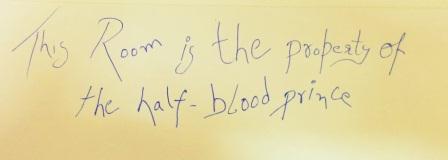 This Room is the property of
the half-blood prince